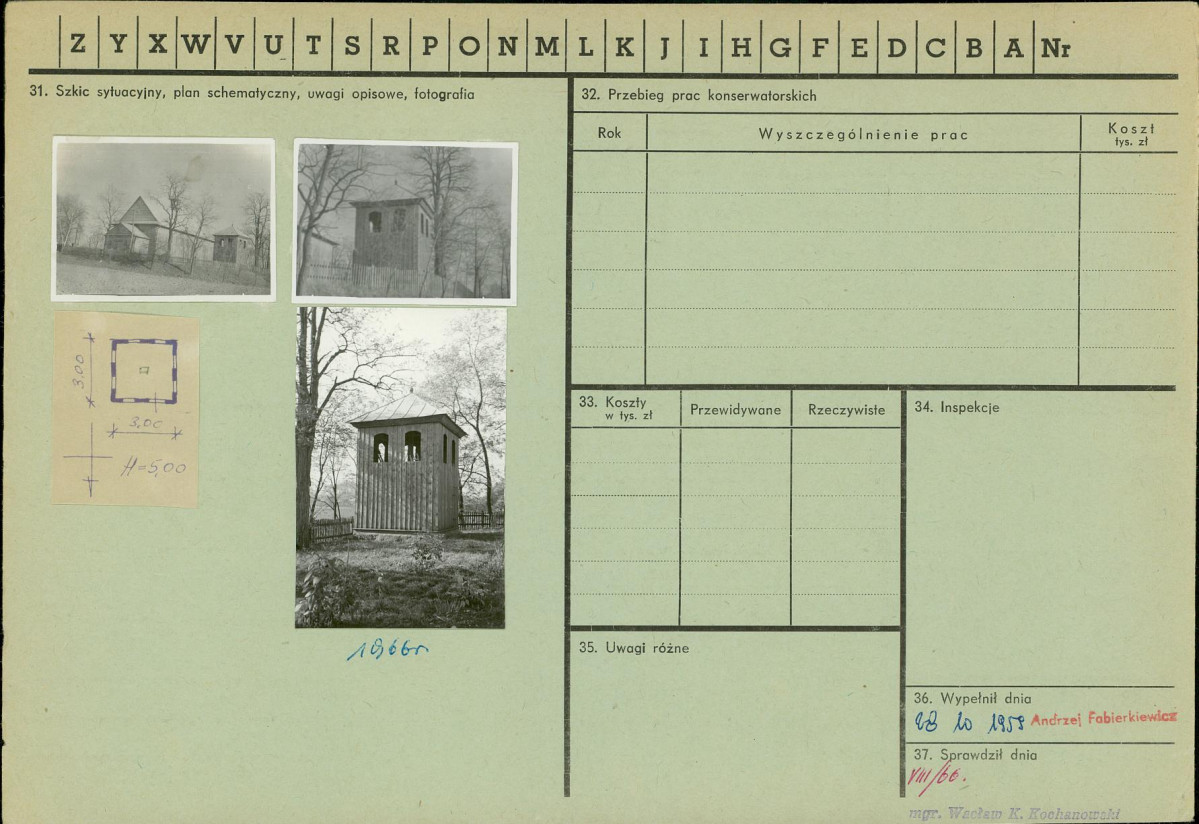 Z Y X W V U T S R P O N M L K J I H G F E D C B A Nr
31. Szkic sytuacyjny, plan schematyczny, uwagi opisowe, fotografia
3.00
3.00
H=5,00
1966r
32. Przebieg prac konserwatorskich
Rok
Wyszczególnienie prac
Koszt
tys. zł
33. Koszty
w tys. zł
Przewidywane
Rzeczywiste
34. Inspekcje
35. Uwagi różne
36. Wypełnił dnia
28 10 1959 Andrzej Fabierkiewicz
37. Sprawdził dnia
VIII/66.
mgr. Wacław K. Kochanowski